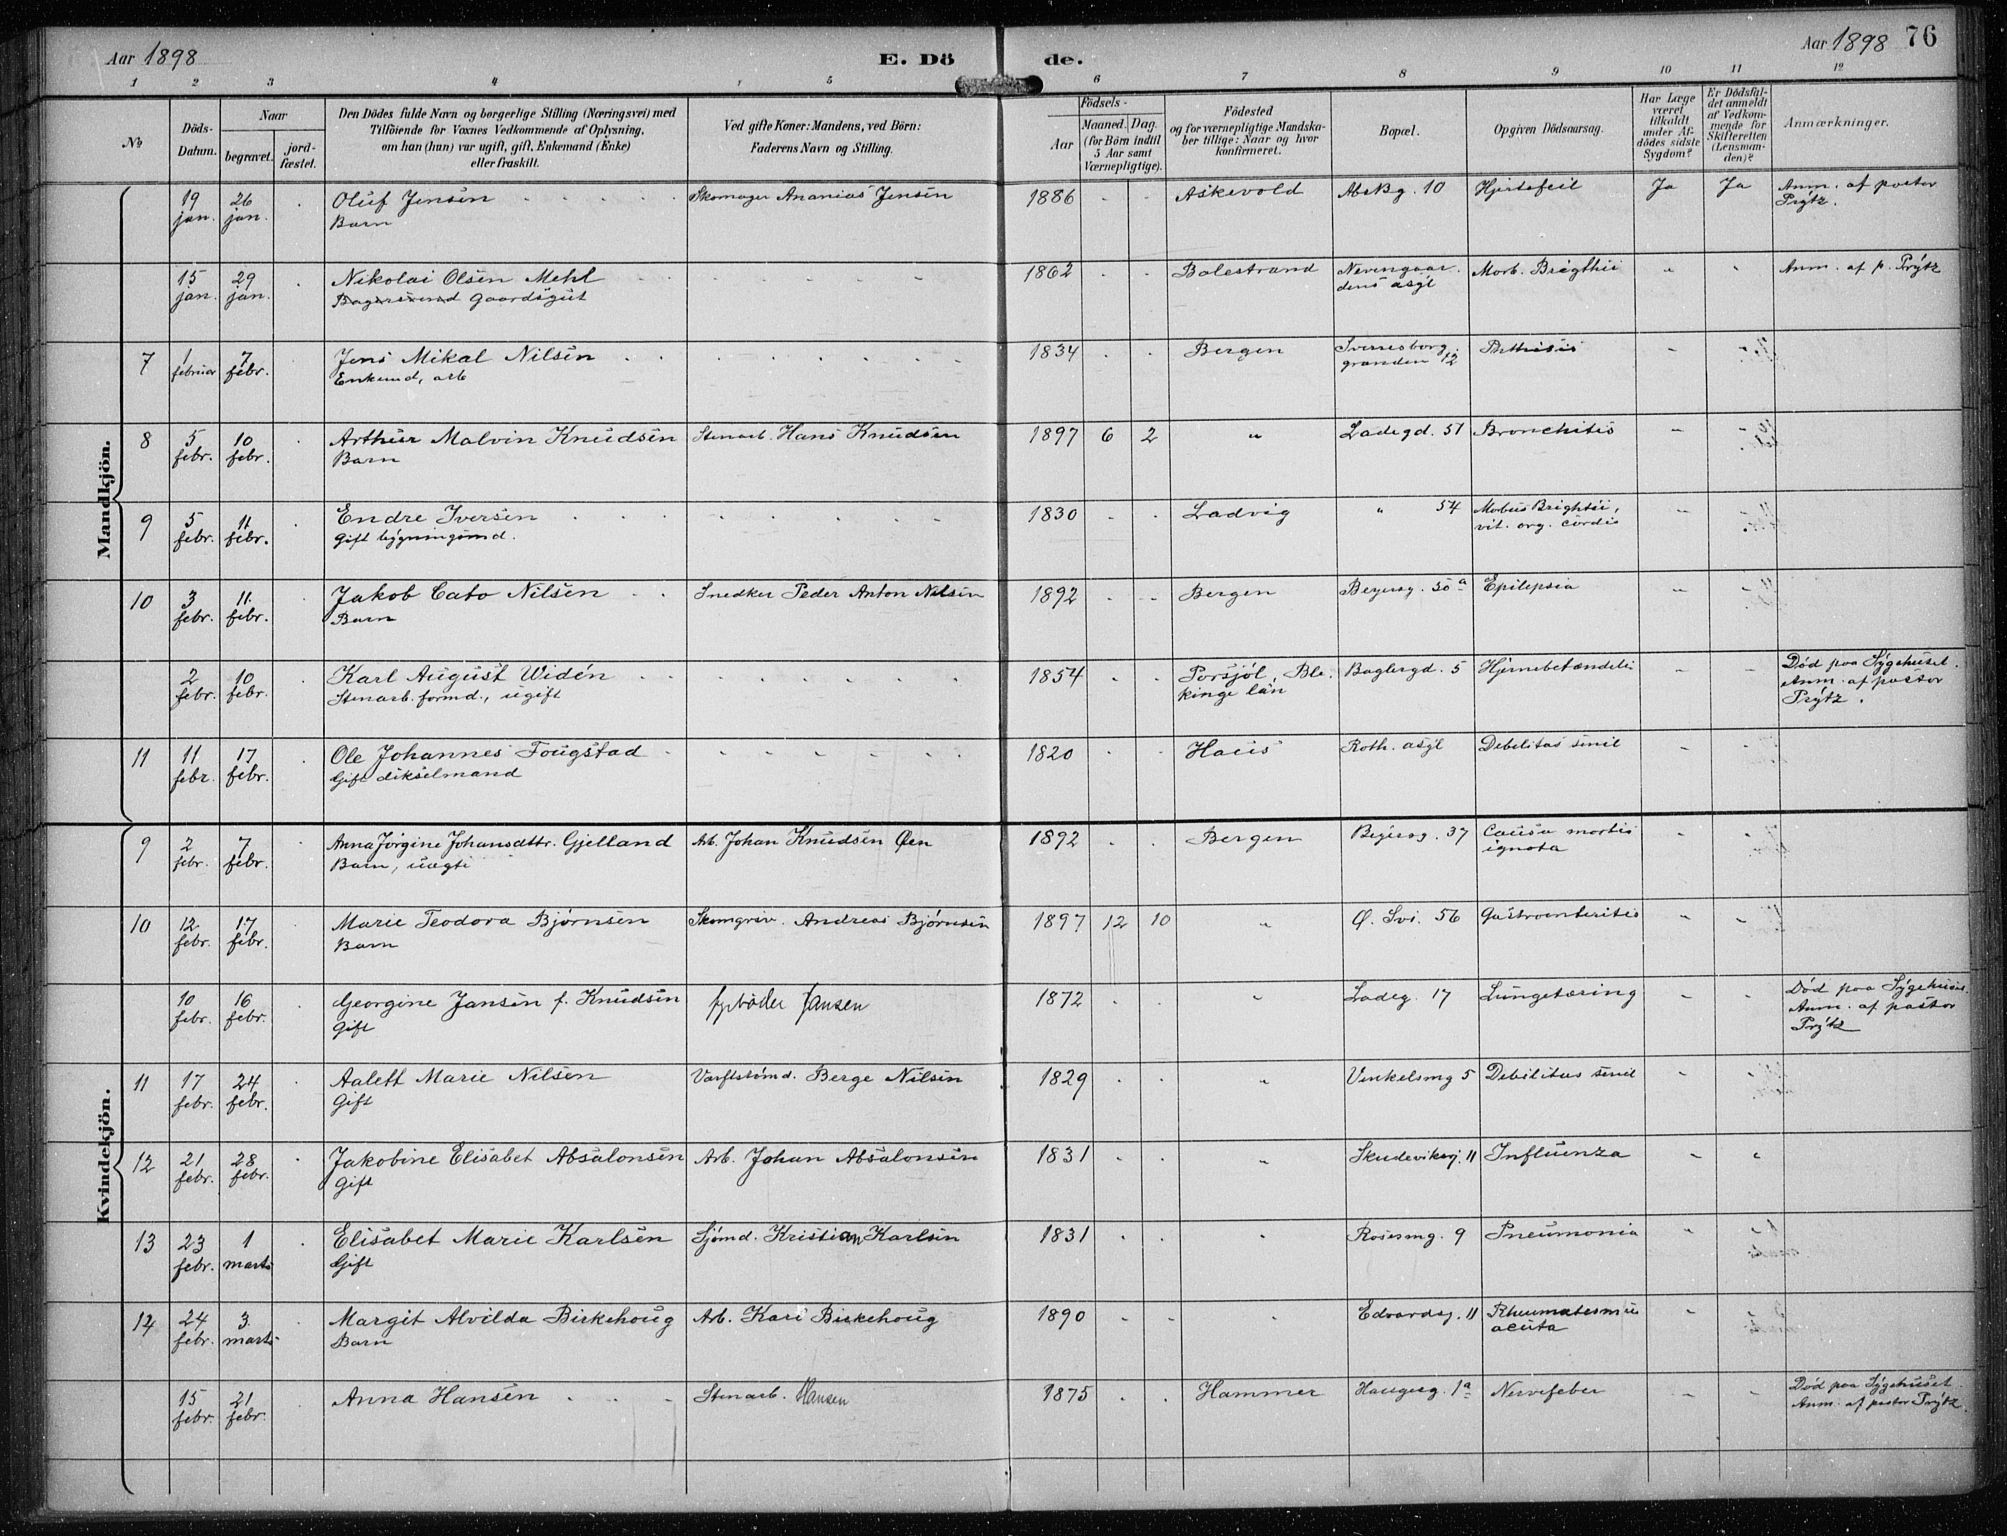 Aar 1898
E. Dö
de.
Aar 1898 76
1 2 3 4 5 6 7 8 9 10 11 12
No
Döds-
Datum.
Naar
begravet.
jord-
fæstet.
Den Dödes fulde Navn og borgerlige Stilling (Næringsvei) med
Tilföiende for Voxnes Vedkommende af Oplysning,
om han (hun) var ugift, gift, Enkemand (Enke)
eller fraskilt.
Ved gifte Koner: Mandens, ved Börn:
Faderens Navn og Stilling.
Födsels-
Aar
Maaned. Dag.
(for Börn indtil
5 Aar samt
Værnepligtige).
Födested
og for værnepligtige Mandska-
ber tillige: Naar og hvor
konfirmeret.
Bopæl.
Opgiven Dödsaarsag.
Har Læge
været
tilkaldt
under Af-
dödes sidste
Sygdom?
Er Dödsfal-
det anmeldt
af Vedkom-
mende for
Skifteretten
(Lensman-
den)?
Anmærkninger.
Mandkjön.
19 26 Oluf Jensen Skomager Ananias Jensen 1886 Askevold 10 Hjertefeil Ja Ja Anm. af pastor
jan. jan. Barn Prÿtz.
15 29 Nikolai Olsen Mehl 1862 Balestrand Nevengaar- Morb. Brigthii " " Anm. af p. Prÿtz
jan. jan. gaardsgut dens asyl
7 1 7 Jens Mikal Nilsen 1834 Bergen Sverresborg-
februar febr. Enkemd, arb granden 12
8 5 10 Arthur Malvin Knudsen Stenarb. Hans Knudsen 1897 6 2 " Ladegd. 51 Bronchitis
febr. febr. Barn
9 5 11 Endre Iversen 1830 Ladvig " 54 Morbus Brightii,
febr. febr. Gift vit. org. cordis
10 3 11 Jakob Cato Nilsen Snedker Peder Anton Nilsen 1892 Bergen Beyersg. 30a Epilepsia
febr. febr. Barn
2 10 Karl August Widén 1854 Porsjöl, Ble- Baglergd. 5 Hjernebetændelse Död paa Sÿgehuset.
febr. febr. Stenarb. formd., ugift kinge län Anm. af pastor
Prÿtz.
11 11 17 Ole Johannes Fougstad 1820 Haus Roth. asyl Debilitas senil
febr. febr. Gift
Kvindekjön.
9 2 7 Anna Jörgine Johansdttr. Gjelland Arb. Johan Knudsen Øen 1892 Bergen Beyersg. 37 Causa mortis
febr. febr. Barn, uægte ignota
10 12 17 Marie Teodora Bjørnsen Andreas Bjørnsen 1897 12 10 " Ø. Svi. 56 Gastroenteritis
febr. febr. Barn
10 16 Georgine Jansen f. Knudsen fyrböder Jansen 1872 " Ladeg. 17 Lungetæring Död paa Sÿgehuset.
febr. febr. Gift Anm. af pastor
Prÿtz
11 17 24 Aalett Marie Nilsen Varftstömd. Berge Nilsen 1829 " Vinkelsmg 5 Debilitas senil
febr. febr. Gift
12 21 28 Jakobine Elisabet Absalonsen Arb. Johan Absalonsen 1831 " Skudeviksg. 11 Influenza
febr. febr. Gift
13 23 1 Elisabet Marie Karlsen Sjömd. Kristian Karlsen 1831 " Rosesmg. 9 Pneumonia
febr. marts Gift
14 24 3 Margit Alvilda Birkehoug Arb. Karl Birkehoug 1890 " Edvardsg. 11 Rheumatismus
febr. marts Barn acuta
15 21 Anna Hansen Stenarb. Hansen 1875 Hammer Haugesg. 1a Nervefeber Död paa Sÿgehuset
febr. febr. Anm. af pastor Prÿtz.